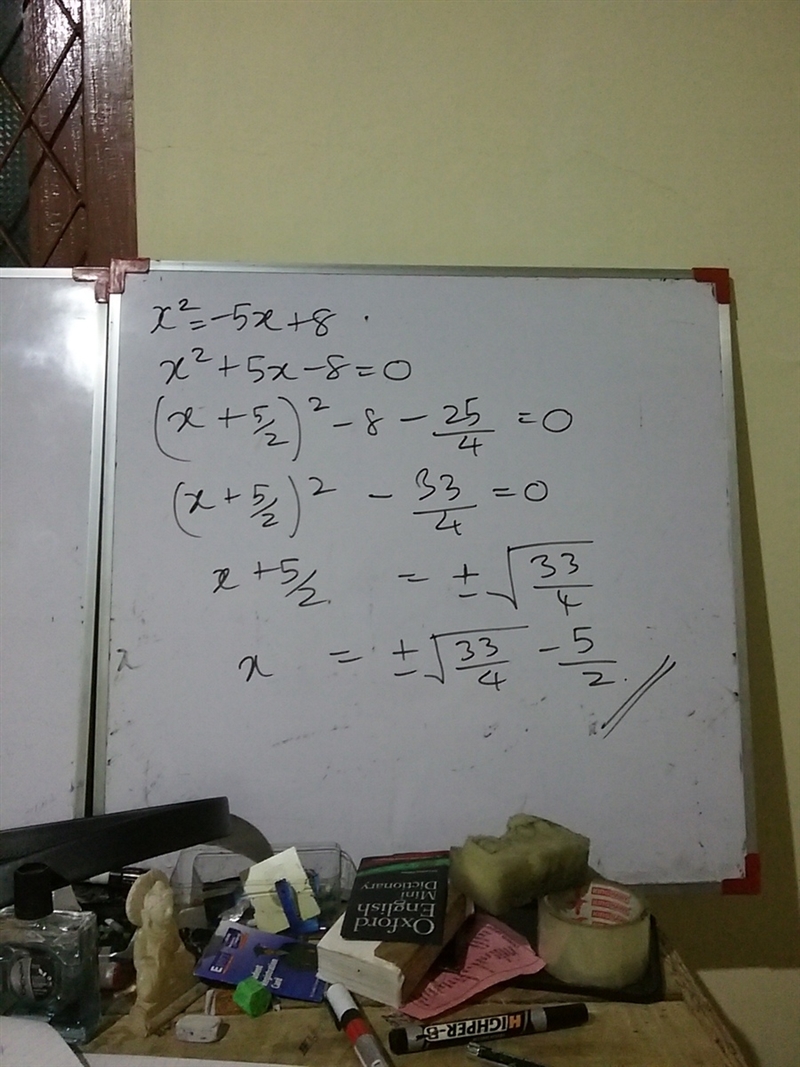 x² = -5x + 8 .
x² + 5x - 8 = 0
(x + 5/2)² - 8 - 25/4 = 0
(x + 5/2)² - 33/4 = 0
x + 5/2 = ± √(33/4)
x = ± √(33/4) - 5/2 . //
x
Oxford
English
Mini
Dictionary
HIGHPER-B